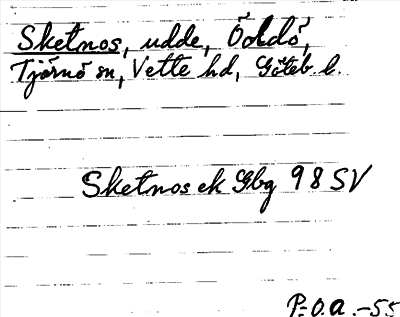 Sketnos, udde, Öddö,
Tjärnö sn, Vette hd, Göteb. l.
Sketnos ek Gbg 98 SV
P.O.a.-55